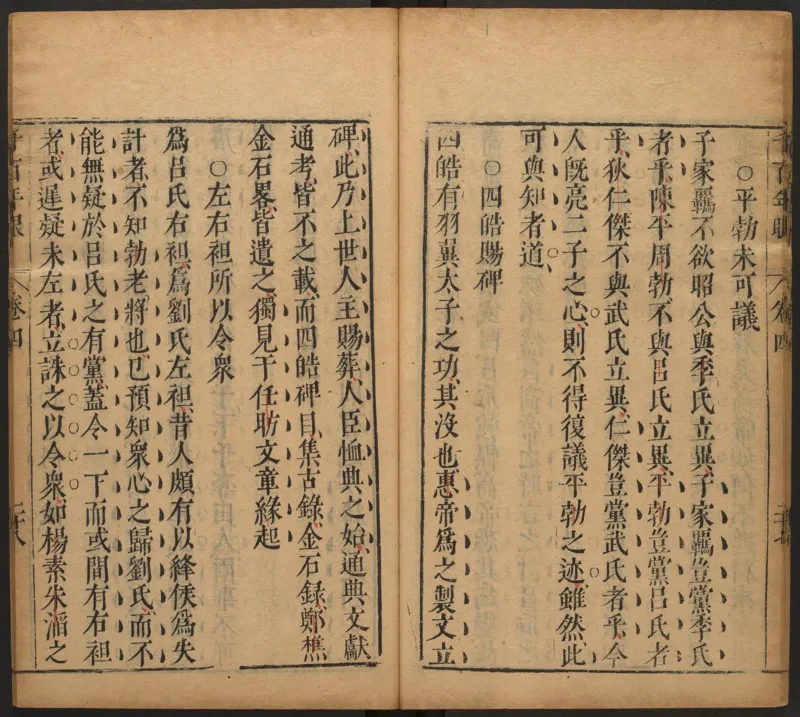 ○平勃未可議
子家羈不欲昭公與季氏立異子家羈豈黨季氏
者乎陳平周勃不與呂氏立異平勃豈黨呂氏者
乎狄仁傑不與武氏立異仁傑豈黨武氏者乎今
人旣亮二子之心則不得復議平勃之迹雖然此
可與知者道
○四皓賜碑
四皓有羽翼太子之功其沒也惠帝爲之製文立
碑此乃上世人主賜葬人臣恤典之始通典文獻
通考皆不之載而四皓碑目集古錄金石録鄭樵
金石畧皆遺之獨見于任昉文章緣起
○左右袒所以令衆
爲呂氏右袒爲劉氏左袒昔人頗有以絳侯爲失
計者不知勃老將也已預知衆心之歸劉氏而不
能無疑於呂氏之有黨蓋令一下而或間有右袒
者或遲疑未左者立誅之以令衆如楊素朱滔之
千百年眼 卷四 二十八